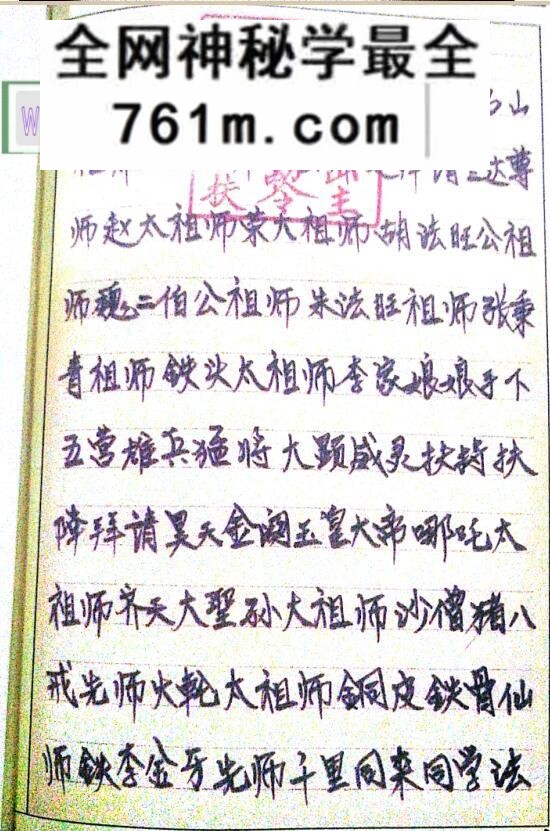 全网神秘学最全
761m.com
W
山
达尊
师赵太祖师荣大祖师胡法旺公祖
师魏二伯公祖师朱法旺祖师张秉
青祖师铁头太祖师李家娘娘手下
五营雄兵猛将大显威灵扶持扶
降拜请昊天金阙玉皇大帝哪吒太
祖师齐天大聖孙大祖师沙僧猪八
戒先师火轮太祖师銅皮鉄骨仙
师鉄李金牙先师千里同来同学法